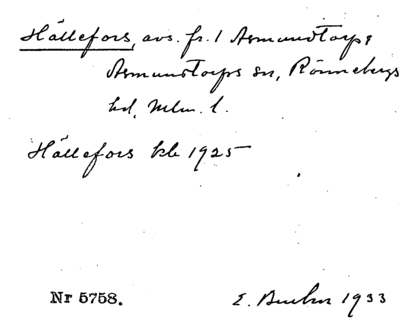 Hällefors, avs. fr. 1 Asmundtorp,
Asmundtorps sn, Rönnebergs
hd, Mlm. l.
Hällefors kb 1925
Nr 5758.
E. 1933